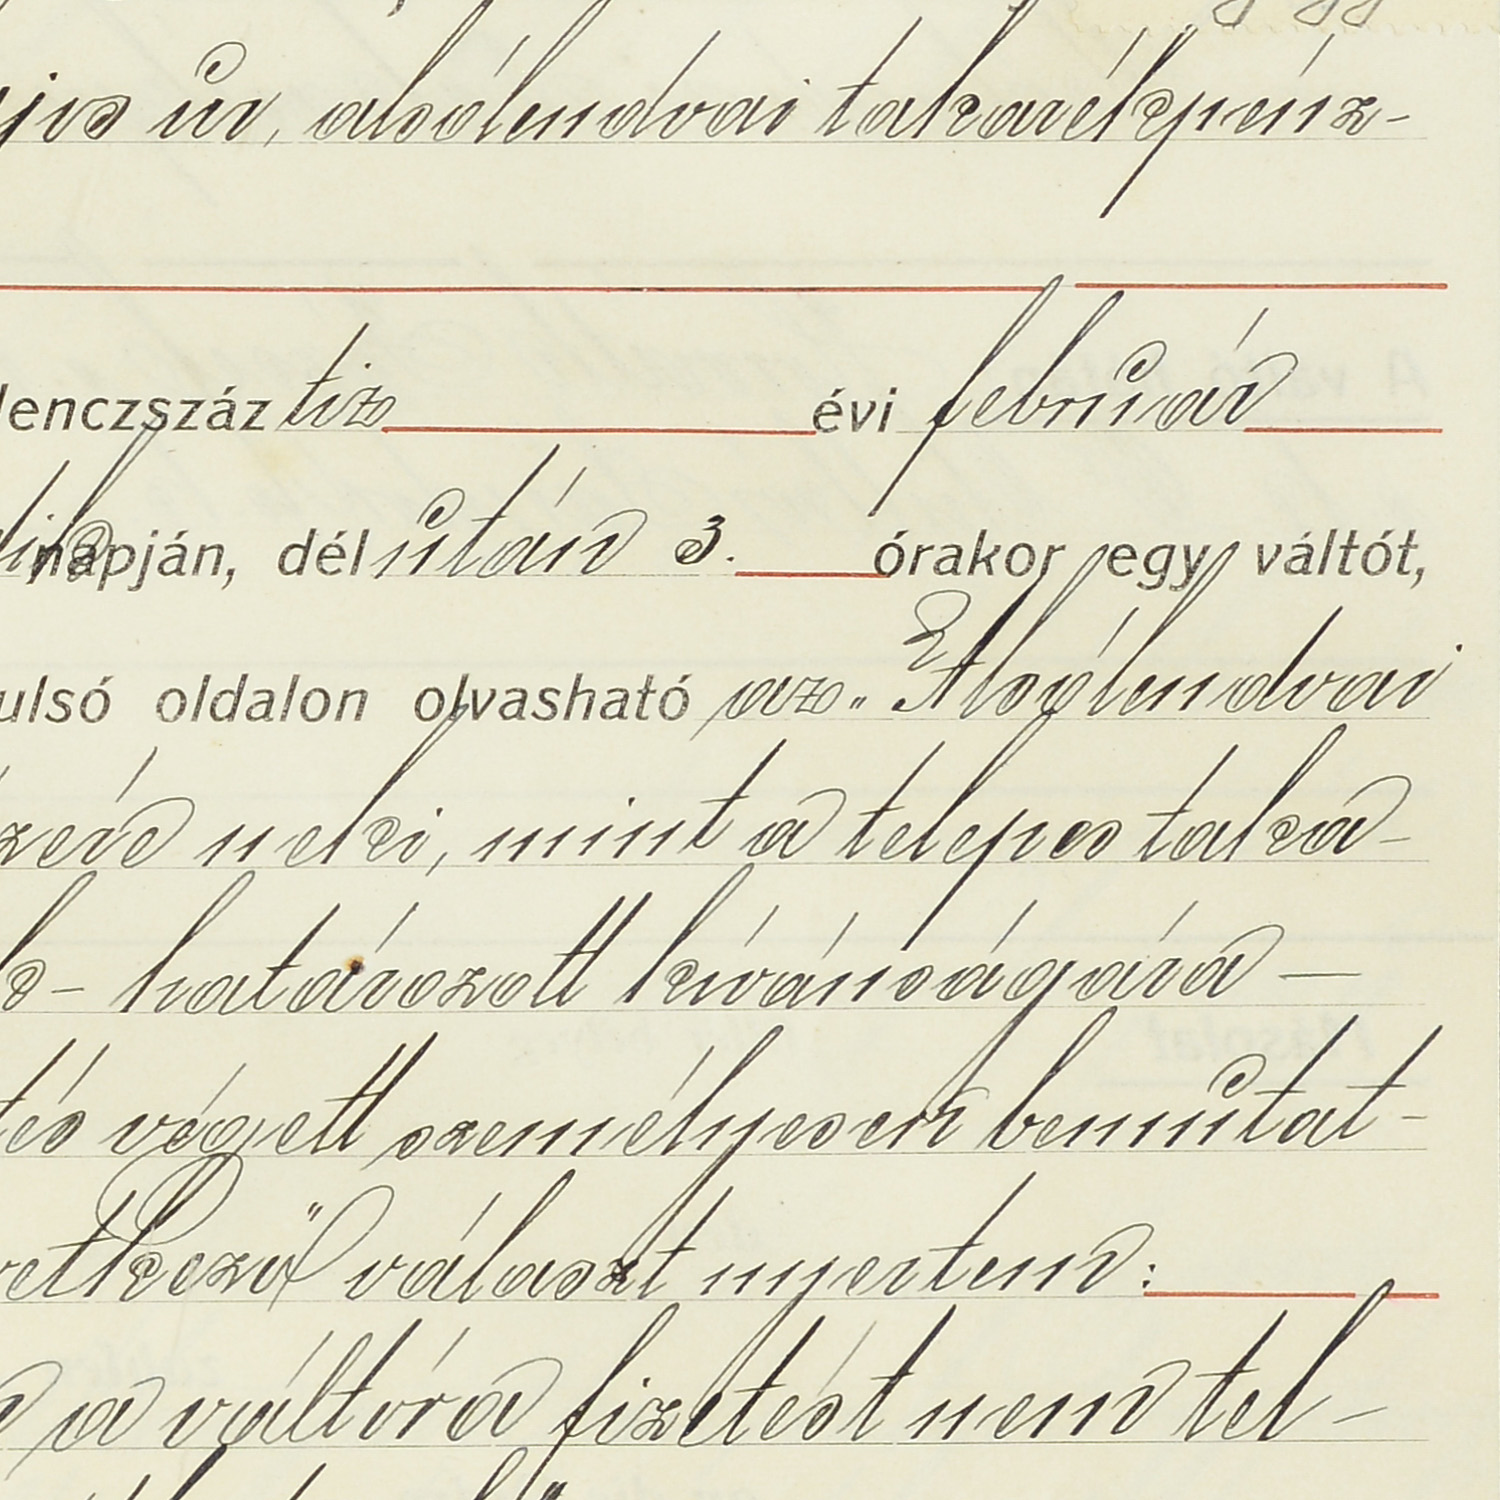 úr, alsólendvai takarékpénz-
lenczszáz tiz évi február
napján, délután 3. órakor egy váltót,
ulsó oldalon olvasható az „Alsólendvai
neki, mint a telepes taka-
- határozott kívánságára —
tés végett személyesen bemutat-
vetkező választ nyertem:
a váltóra fizetést nem tel-